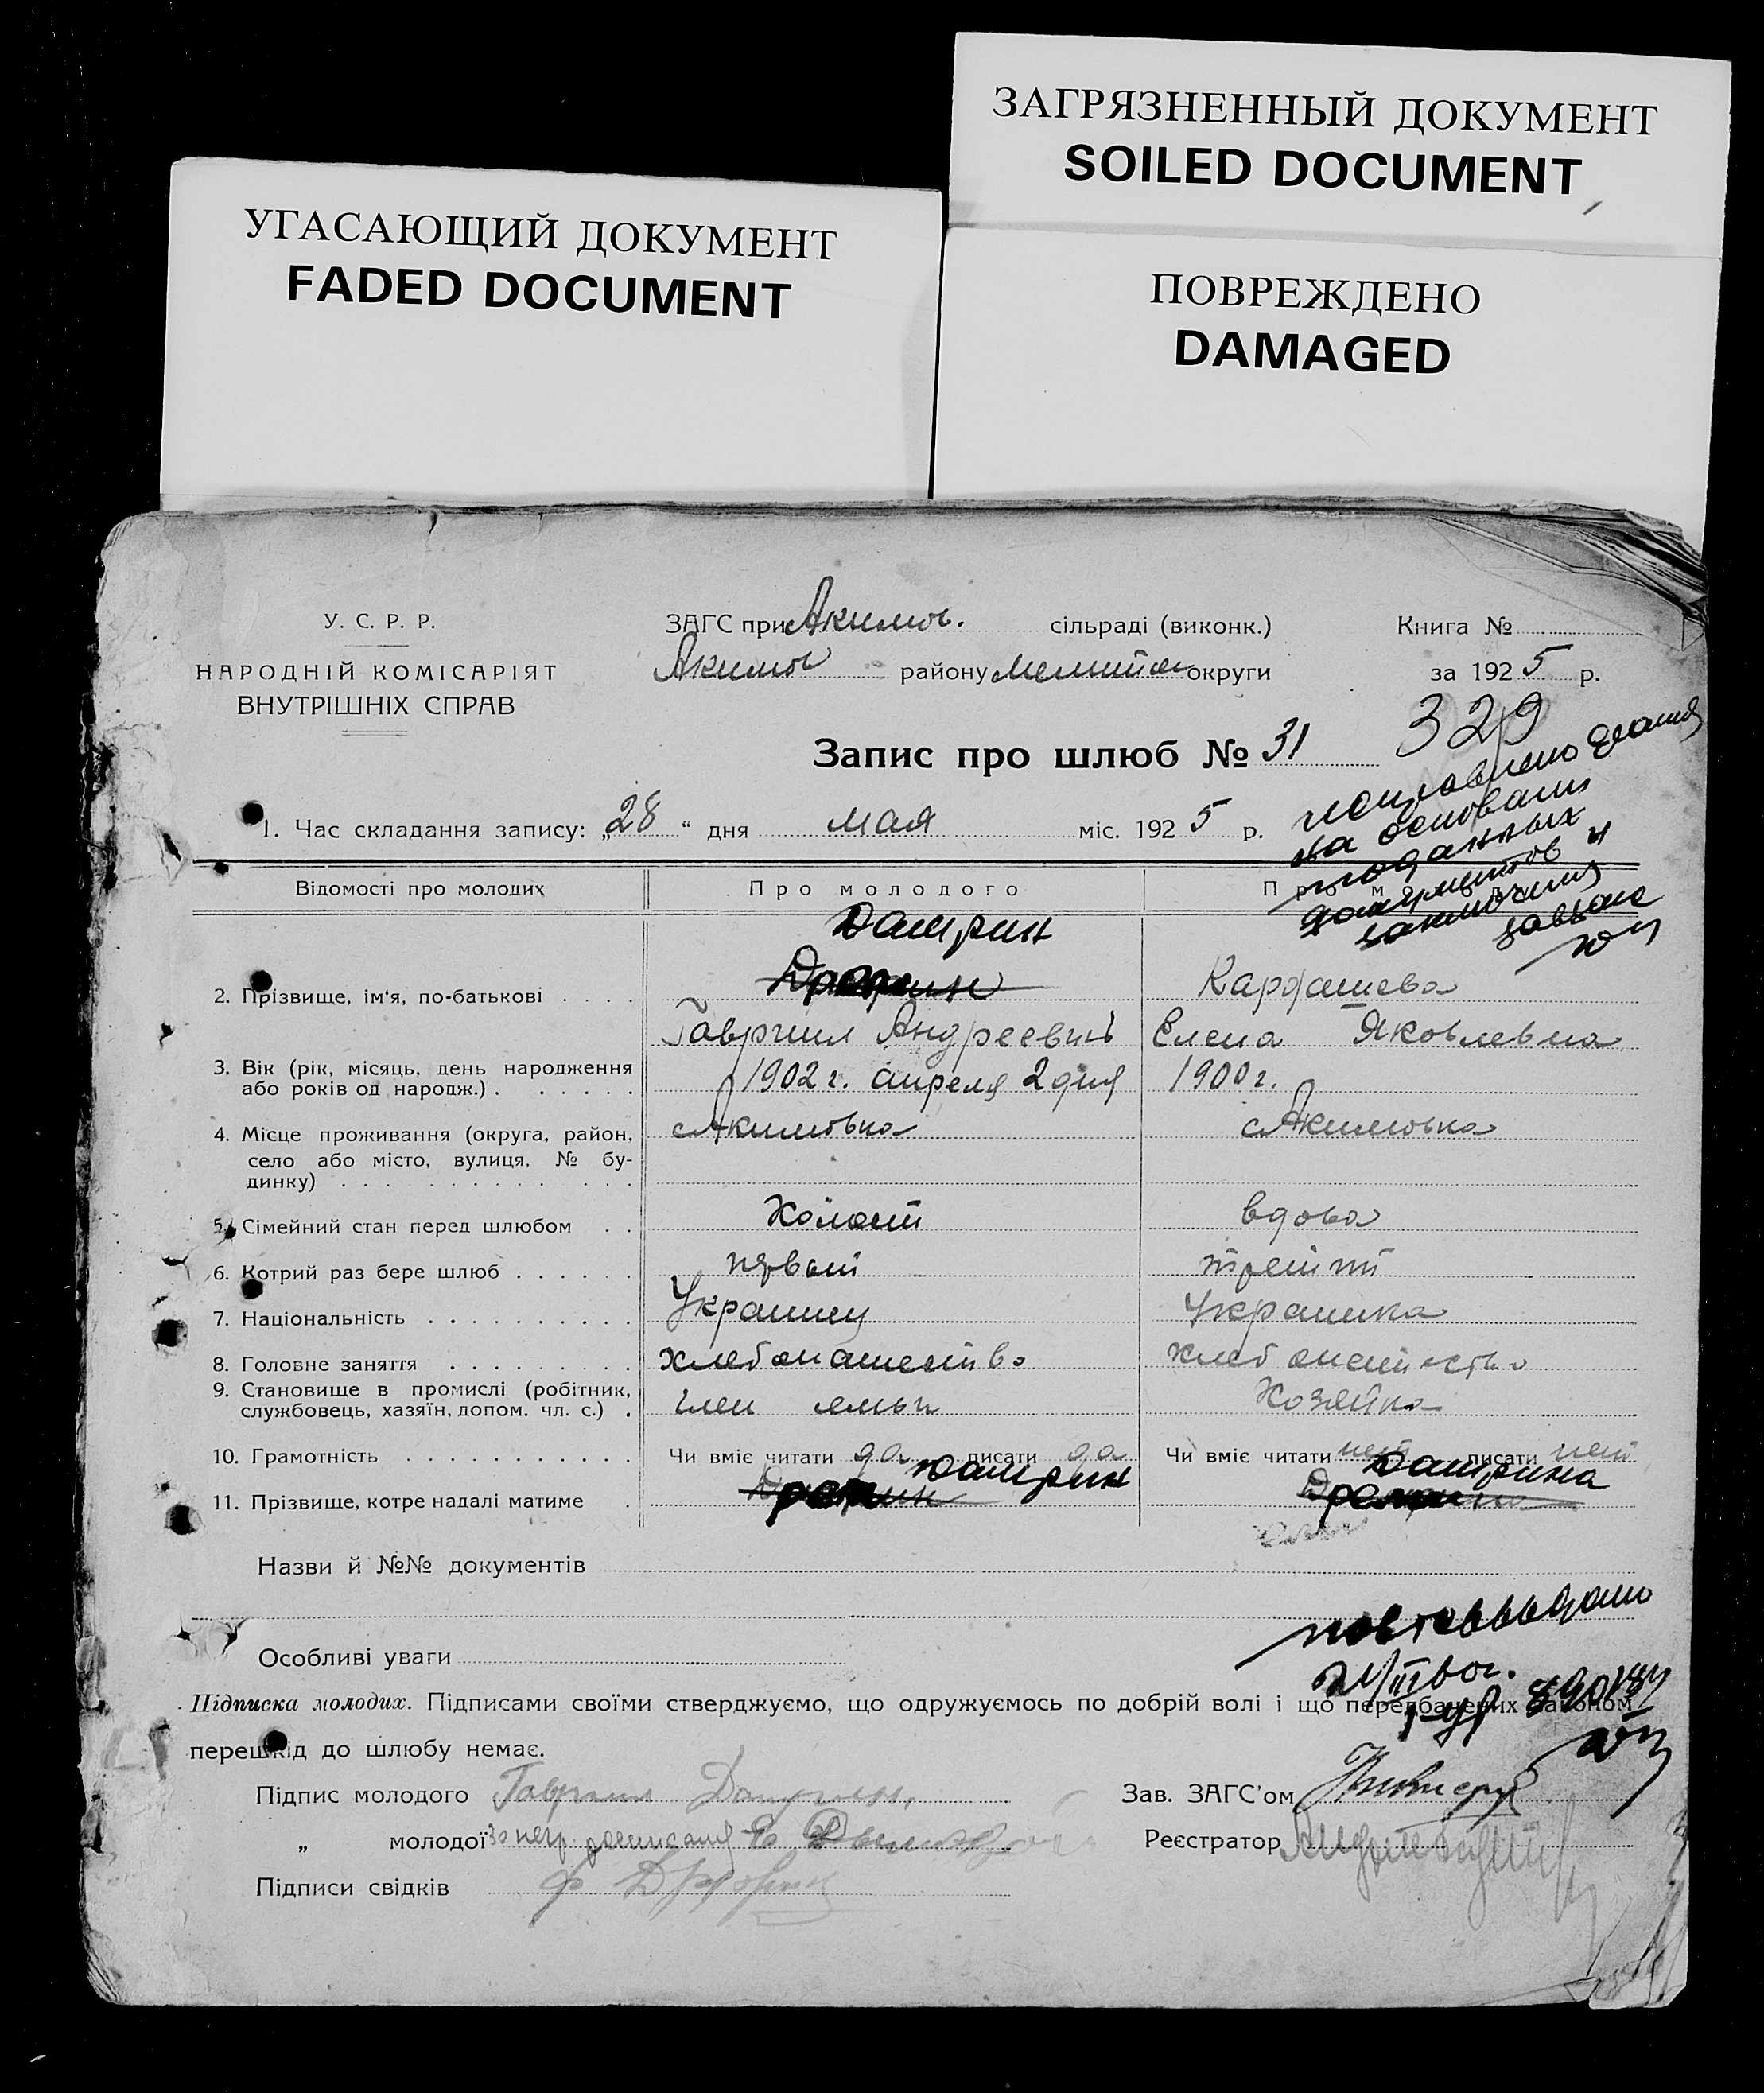 ЗАГРЯЗНЕННЫЙ ДОКУМЕНТ
SOILED DOCUMENT
УГАСАЮЩИЙ ДОКУМЕНТ
FADED DOCUMENT
ПОВРЕЖДЕНО
DAMAGED
У. С. Р. Р.
НАРОДНІЙ КОМІСАРІЯТ
ВНУТРІШНІХ СПРАВ
ЗАГС при Акимов. сільраді (виконк.)
Акимов району Мелитоп округи
Книга №
за 1925 р.
329
Запис про шлюб № 31
исправлено
на основании
поданных
документов и
1. Час складання запису: „28“ дня мая міс. 1925 р.
Відомості про молодих
Про молодого
Дашрин
2. Прізвище, ім‘я, по-батькові
Гавриил Андреевич
Кардашева
Елена Яковлевна
3. Вік (рік, місяць, день народження або років од народж.)
1902 г. апреля 2 дня
1900 г.
4. Місце проживання (округа, район, село або місто, вулиця, № будинку)
с Акимовка
с Акимовка
5. Сімейний стан перед шлюбом
Холост
вдова
6. Котрий раз бере шлюб
первый
третий
7. Національність
Украинец
Украинка
8. Головне заняття
хлебопашество
9. Становище в промислі (робітник, службовець, хазяїн, допом. чл. с.)
член семьи
Хозяйка
10. Грамотність
Чи вміє читати да писати да
Чи вміє читати нет писати нет
11. Прізвище, котре надалі матиме
Дашрин
Дашрина
Назви й №№ документів
Особливі уваги
Підписка молодих. Підписами своїми стверджуємо, що одружуємось по добрій волі і що передбачених законом
перешкід до шлюбу немає.
Підпис молодого Гавриил Дашрин
„ молодої за негр росписался
Підписи свідків
Зав. ЗАГС’ом
Реєстратор